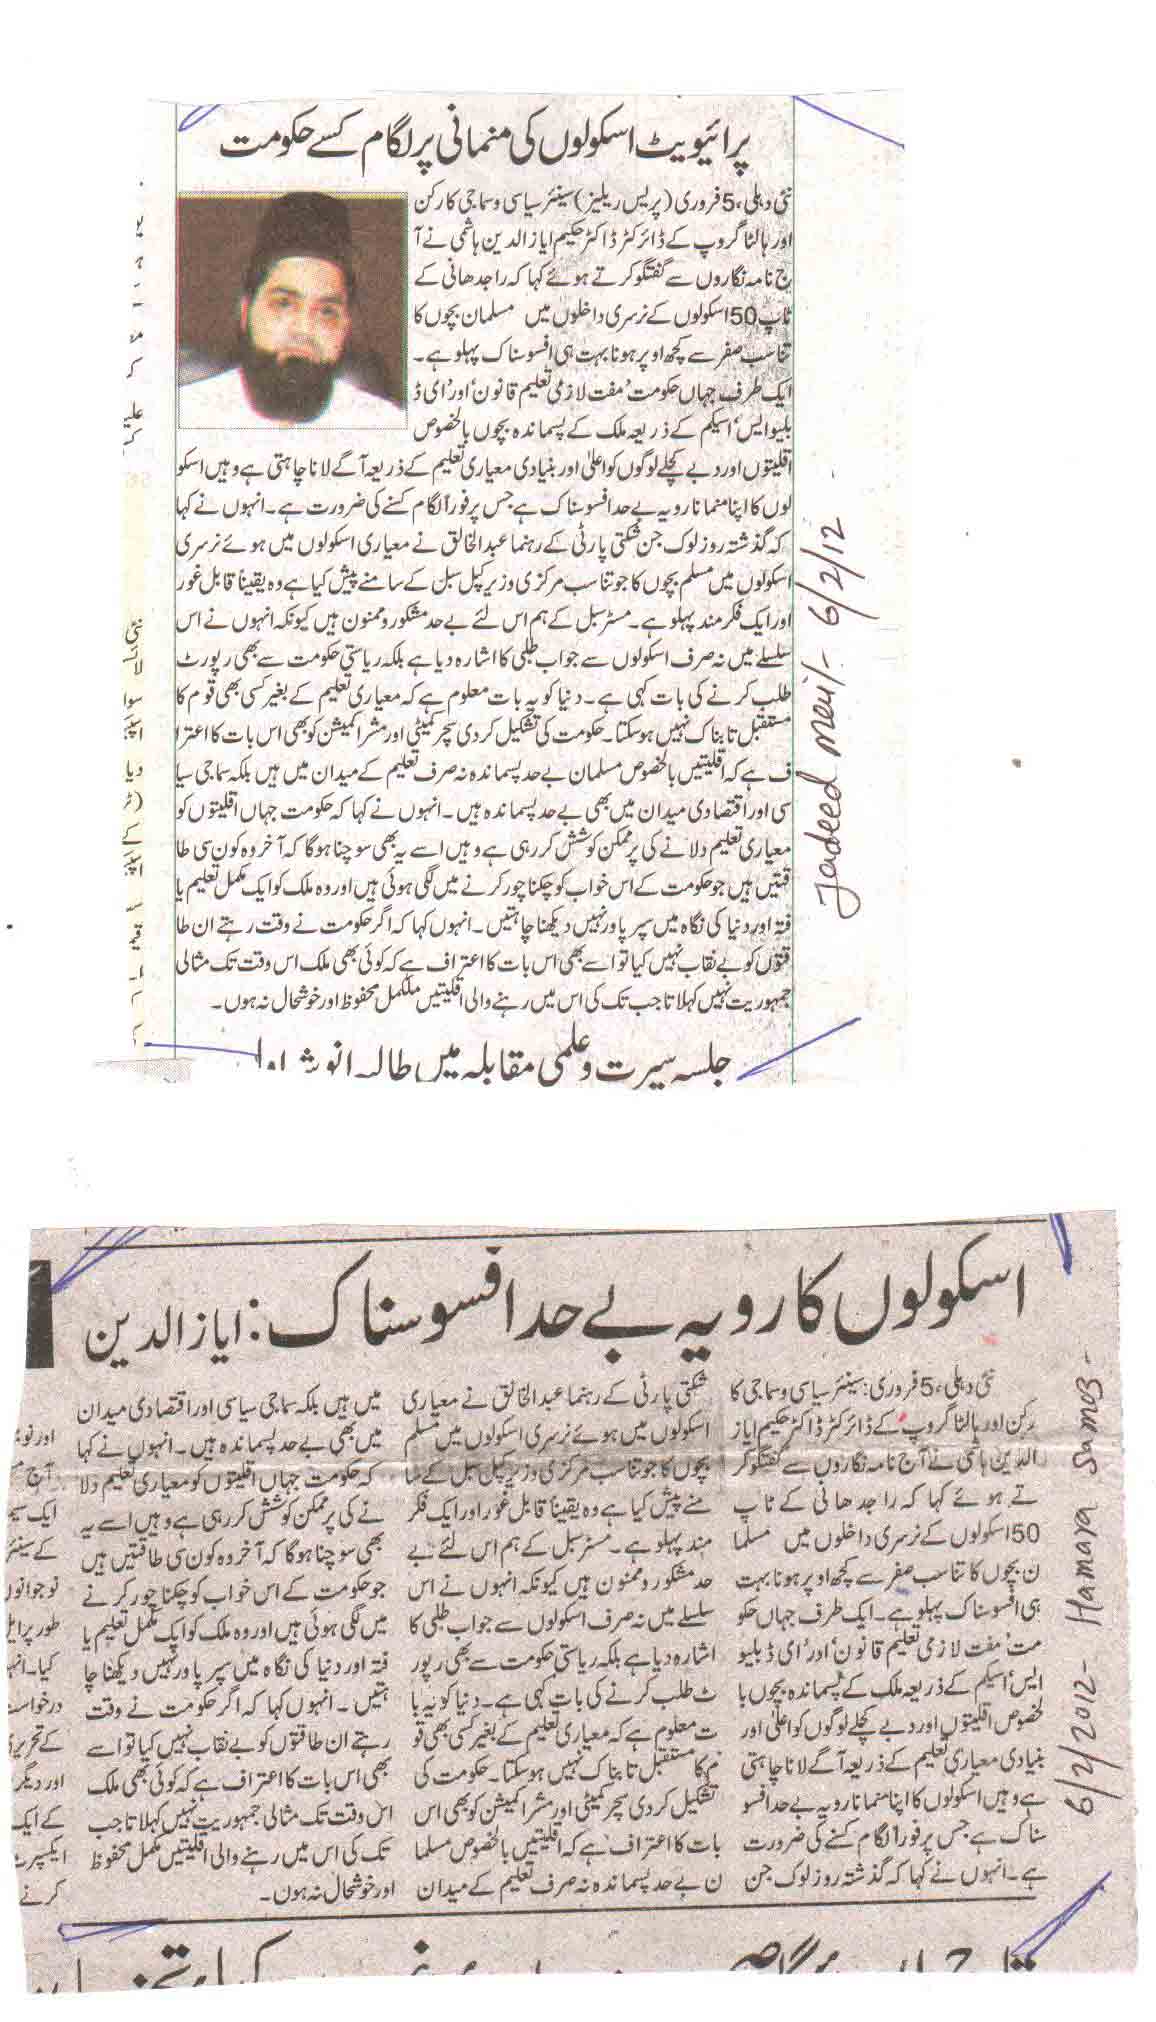 پرائیویٹ اسکولوں کی منمانی پر لگام کسے حکومت
نئی دہلی، 5 فروری (پریس ریلیز) سینئر سیاسی و سماجی کارکن
اور ہالٹا گروپ کے ڈائرکٹر ڈاکٹر حکیم ایاز الدین ہاشمی نے آ
ج نامہ نگاروں سے گفتگو کرتے ہوئے کہا کہ راجدھانی کے
ٹاپ 50 اسکولوں کے نرسری داخلوں میں مسلمان بچوں کا
تناسب صفر سے کچھ اوپر ہونا بہت ہی افسوسناک پہلو ہے۔
ایک طرف جہاں حکومت 'مفت لازمی تعلیم قانون' اور 'ای ڈ
بلیو ایس' اسکیم کے ذریعہ ملک کے پسماندہ بچوں بالخصوص
اقلیتوں اور دبے کچلے لوگوں کو اعلیٰ اور بنیادی معیاری تعلیم کے ذریعہ آگے لانا چاہتی ہے وہیں اسکو
لوں کا اپنا منمانا رویہ بے حد افسوسناک ہے جس پر فوراً لگام کسنے کی ضرورت ہے۔ انہوں نے کہا
کہ گذشتہ روز لوک جن شکتی پارٹی کے رہنما عبدالخالق نے معیاری اسکولوں میں ہوئے نرسری
اسکولوں میں مسلم بچوں کا جو تناسب مرکزی وزیر کپل سبل کے سامنے پیش کیا ہے وہ یقیناً قابل غور
اور ایک فکر مند پہلو ہے۔ مسٹر سبل کے ہم اس لئے بے حد مشکور و ممنون ہیں کیونکہ انہوں نے اس
سلسلے میں نہ صرف اسکولوں سے جواب طلبی کا اشارہ دیا ہے بلکہ ریاستی حکومت سے بھی رپورٹ
طلب کرنے کی بات کہی ہے۔ دنیا کو یہ بات معلوم ہے کہ معیاری تعلیم کے بغیر کسی بھی قوم کا
مستقبل تابناک نہیں ہوسکتا۔ حکومت کی تشکیل کردی سچر کمیٹی اور مشرا کمیشن کو بھی اس بات کا اعترا
ف ہے کہ اقلیتیں بالخصوص مسلمان بے حد پسماندہ نہ صرف تعلیم کے میدان میں ہیں بلکہ سماجی سیا
سی اور اقتصادی میدان میں بھی بے حد پسماندہ ہیں۔ انہوں نے کہا کہ حکومت جہاں اقلیتوں کو
معیاری تعلیم دلانے کی ہر ممکن کوشش کر رہی ہے وہیں اسے یہ بھی سوچنا ہوگا کہ آخر وہ کون سی طا
قتیں ہیں جو حکومت کے اس خواب کو چکنا چور کرنے میں لگی ہوئی ہیں اور وہ ملک کو ایک مکمل تعلیم یا
فتہ اور دنیا کی نگاہ میں سپر پاور نہیں دیکھنا چاہتیں۔ انہوں کہا کہ اگر حکومت نے وقت رہتے ان طا
قتوں کو بے نقاب نہیں کیا تو اسے بھی اس بات کا اعتراف ہے کہ کوئی بھی ملک اس وقت تک مثالی
جمہوریت نہیں کہلاتا جب تک کی اس میں رہنے والی اقلیتیں مکمل محفوظ اور خوشحال نہ ہوں۔
جلسہ سیرت و علمی مقابلہ میں
Jadeed Mail - 6/2/12
اسکولوں کا رویہ بے حد افسوسناک: ایاز الدین
نئی دہلی، 5 فروری: سینئر سیاسی و سماجی کا
رکن اور ہالٹا گروپ کے ڈائرکٹر ڈاکٹر حکیم ایاز
الدین ہاشمی نے آج نامہ نگاروں سے گفتگو کر
تے ہوئے کہا کہ راجدھانی کے ٹاپ
50 اسکولوں کے نرسری داخلوں میں مسلما
ن بچوں کا تناسب صفر سے کچھ اوپر ہونا بہت
ہی افسوسناک پہلو ہے۔ ایک طرف جہاں حکو
مت 'مفت لازمی تعلیم قانون' اور 'ای ڈبلیو
ایس' اسکیم کے ذریعہ ملک کے پسماندہ بچوں با
لخصوص اقلیتوں اور دبے کچلے لوگوں کو اعلیٰ اور
بنیادی معیاری تعلیم کے ذریعہ آگے لانا چاہتی
ہے وہیں اسکولوں کا اپنا منمانا رویہ بے حد افسو
سناک ہے جس پر فوراً لگام کسنے کی ضرورت
ہے۔ انہوں نے کہا کہ گذشتہ روز لوک جن
شکتی پارٹی کے رہنما عبدالخالق نے معیاری
اسکولوں میں ہوئے نرسری اسکولوں میں مسلم
بچوں کا جو تناسب مرکزی وزیر کپل سبل کے سا
منے پیش کیا ہے وہ یقیناً قابل غور اور ایک فکر
مند پہلو ہے۔ مسٹر سبل کے ہم اس لئے بے
حد مشکور و ممنون ہیں کیونکہ انہوں نے اس
سلسلے میں نہ صرف اسکولوں سے جواب طلبی کا
اشارہ دیا ہے بلکہ ریاستی حکومت سے بھی رپور
ٹ طلب کرنے کی بات کہی ہے۔ دنیا کو یہ با
ت معلوم ہے کہ معیاری تعلیم کے بغیر کسی بھی قو
م کا مستقبل تابناک نہیں ہوسکتا۔ حکومت کی
تشکیل کردی سچر کمیٹی اور مشرا کمیشن کو بھی اس
بات کا اعتراف ہے کہ اقلیتیں بالخصوص مسلما
ن بے حد پسماندہ نہ صرف تعلیم کے میدان
میں ہیں بلکہ سماجی سیاسی اور اقتصادی میدان
میں بھی بے حد پسماندہ ہیں۔ انہوں نے کہا
کہ حکومت جہاں اقلیتوں کو معیاری تعلیم دلا
نے کی ہر ممکن کوشش کر رہی ہے وہیں اسے یہ
بھی سوچنا ہوگا کہ آخر وہ کون سی طاقتیں ہیں
جو حکومت کے اس خواب کو چکنا چور کرنے
میں لگی ہوئی ہیں اور وہ ملک کو ایک مکمل تعلیم یا
فتہ اور دنیا کی نگاہ میں سپر پاور نہیں دیکھنا چا
ہتیں۔ انہوں کہا کہ اگر حکومت نے وقت
رہتے ان طاقتوں کو بے نقاب نہیں کیا تو اسے
بھی اس بات کا اعتراف ہے کہ کوئی بھی ملک
اس وقت تک مثالی جمہوریت نہیں کہلاتا جب
تک کی اس میں رہنے والی اقلیتیں مکمل محفوظ
اور خوشحال نہ ہوں۔
6/2/2012 - Hamara Samaj -